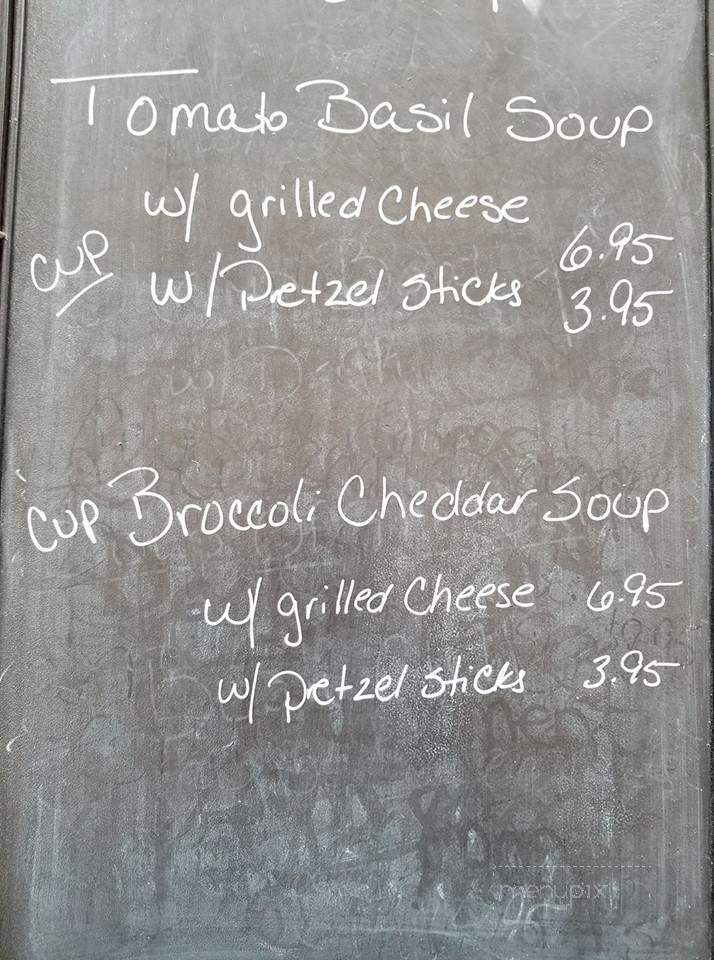 Tomato Basil Soup
w/ grilled Cheese 6.95
cup w/ Pretzel Sticks 3.95
cup Broccoli Cheddar Soup
w/ grilled Cheese 6.95
w/ pretzel sticks 3.95
menupix